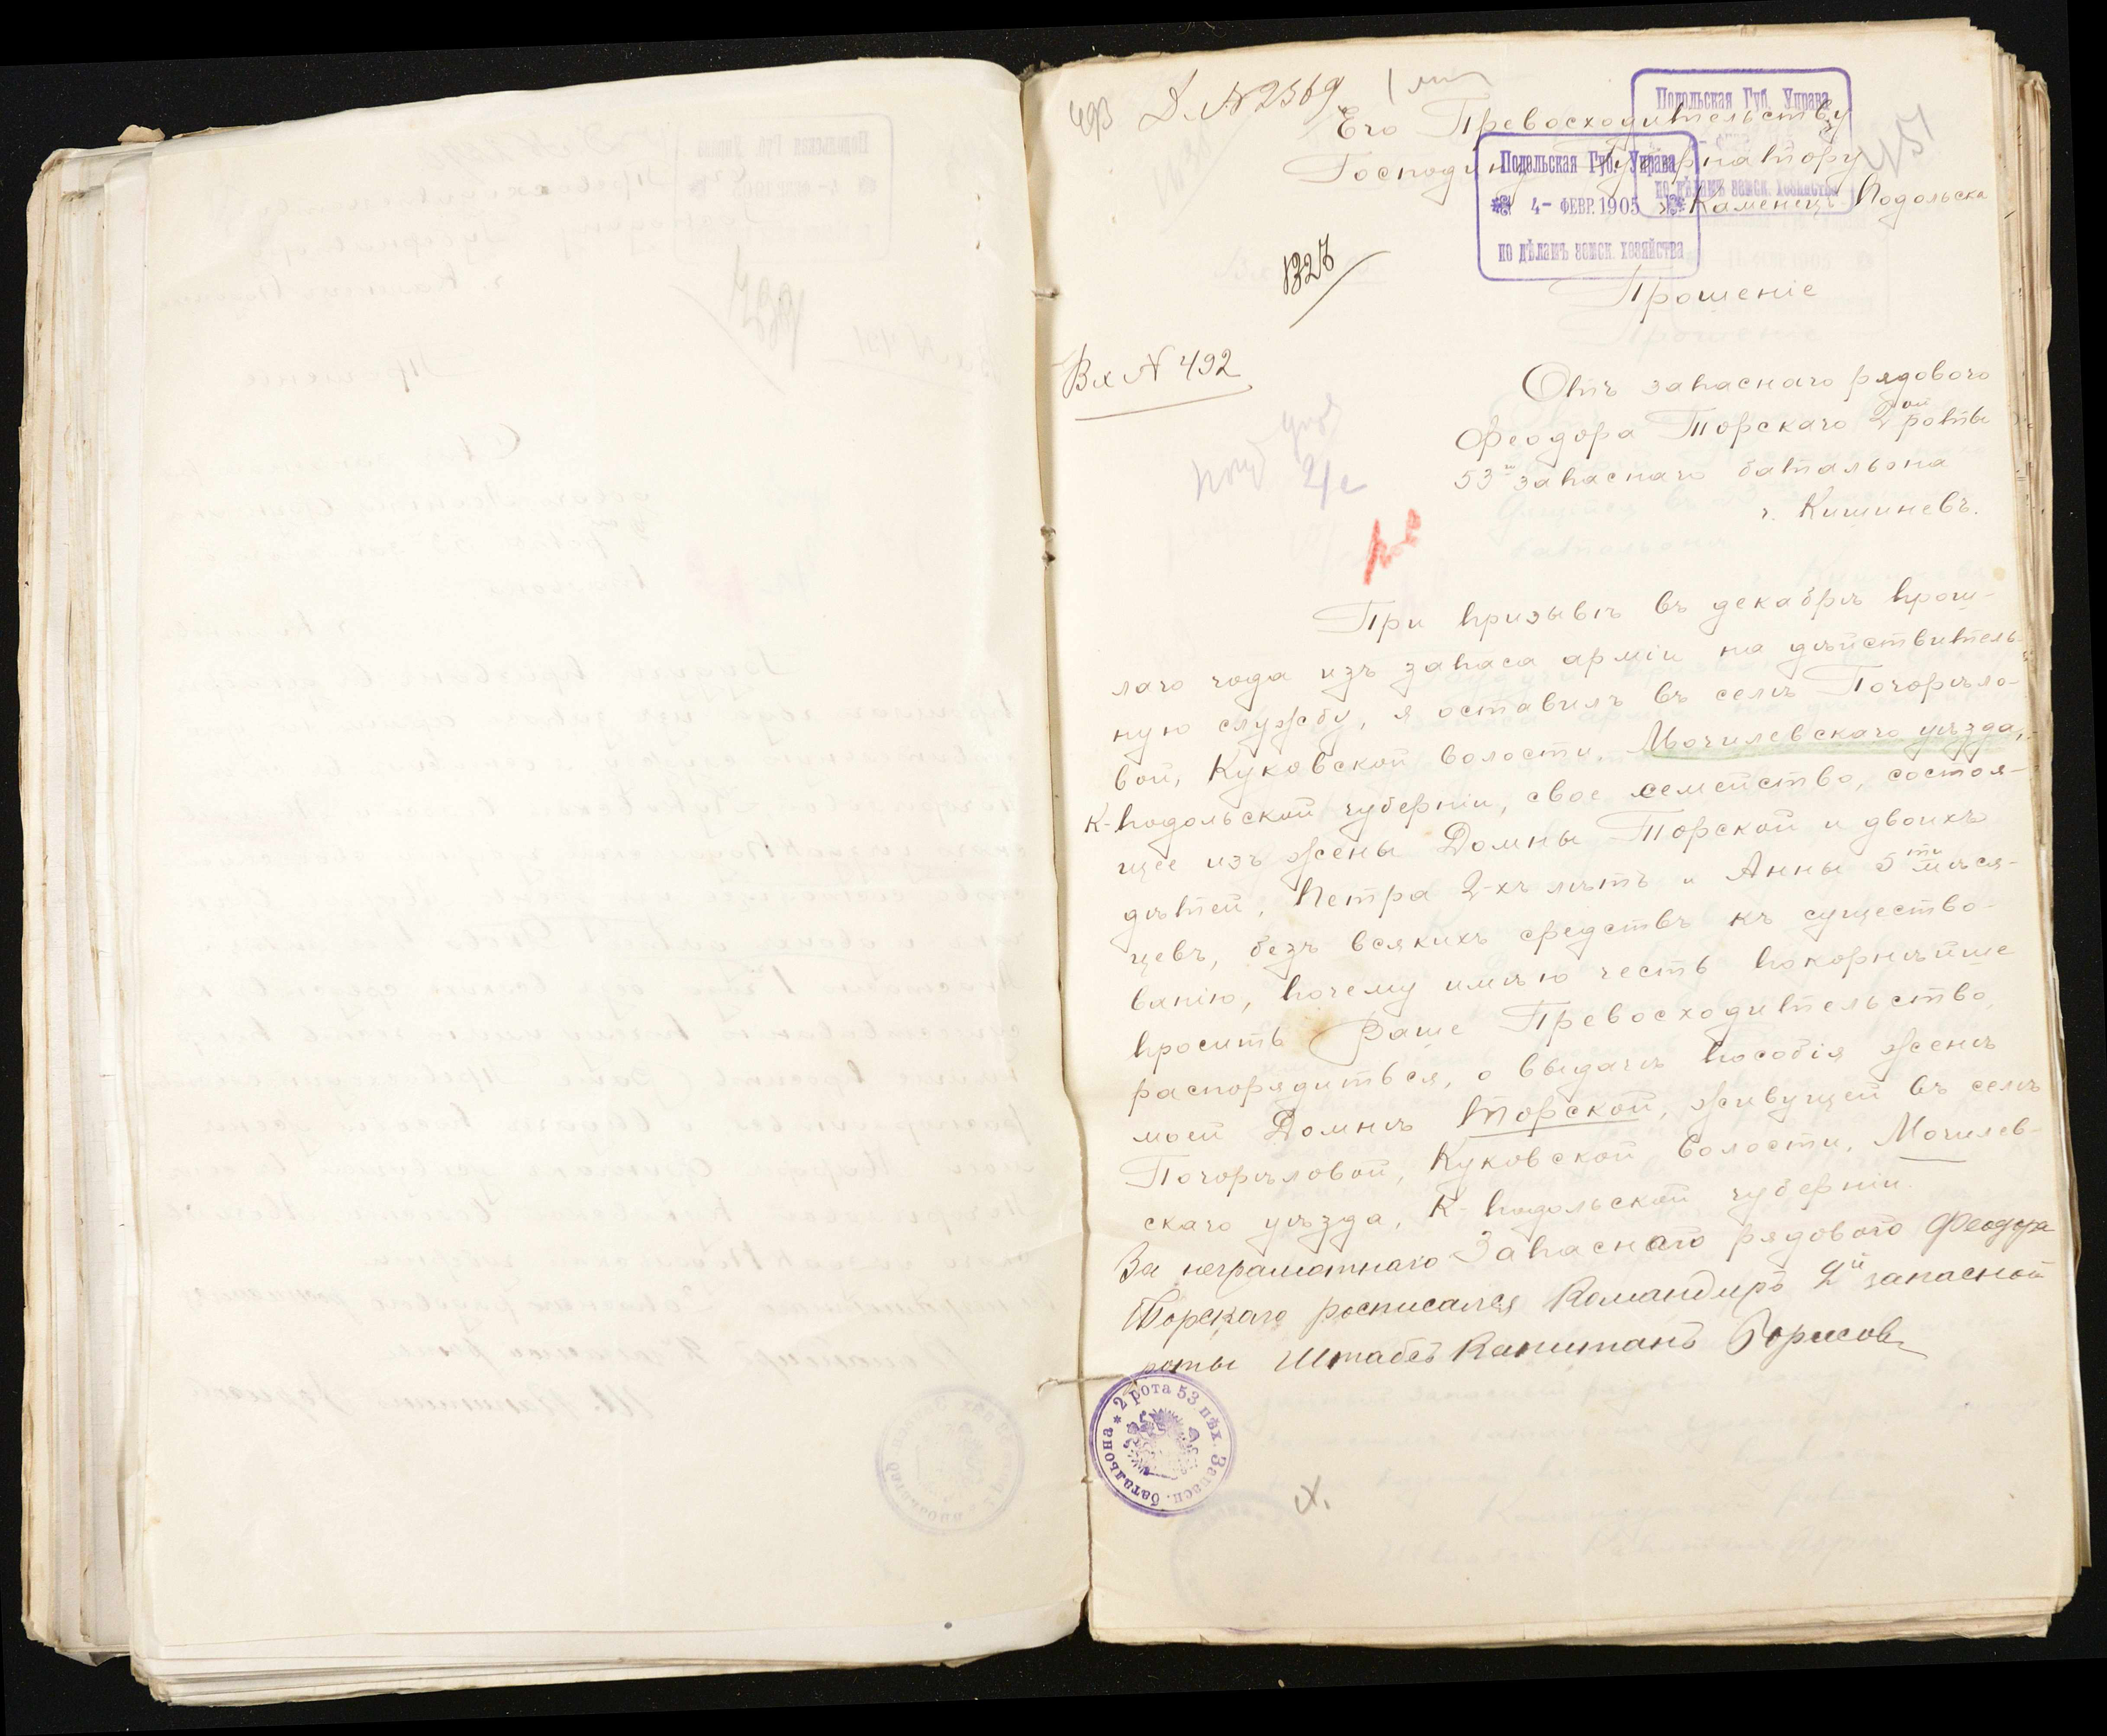 493 Д. № 2569
Его Превосходительству
Господину Губернатору
г. Каменецъ Подольска
Подольская Губ. Управа
по дѣламъ земск. хозяйства
Подольская Губ. Управа
4- ФЕВР. 1905
по дѣламъ земск. хозяйства
1327
Прошеніе
Вх № 492
Отъ запаснаго рядового
Феодора Торскаго 2ой роты
53го запаснаго батальона
г. Кишиневъ.
При призывѣ въ декабрѣ прош-
лаго года изъ запаса арміи на дѣйствитель-
ную службу, я оставилъ въ селѣ Погорѣло-
вой, Куковской волости, Могилевскаго уѣзда,
К-Подольской губерніи, свое семейство, состоя-
щее изъ жены Домны Торской и двоихъ
дѣтей, Петра 2-хъ лѣтъ и Анны 5ти мѣся-
цевъ, безъ всякихъ средствъ къ существо-
ванію, почему имѣю честь покорнѣйше
просить Ваше Превосходительство
распорядиться, о выдачѣ пособія женѣ
моей Домнѣ Торской, живущей въ селѣ
Погорѣловой, Куковской волости, Могилев-
скаго уѣзда, К-Подольской губерніи.
За неграмотнаго Запаснаго рядового Феодора
Торскаго росписался Командиръ 2й запасной
роты Штабсъ Капитанъ Борисов
2 рота 53 пѣх. Запасн. баталъона